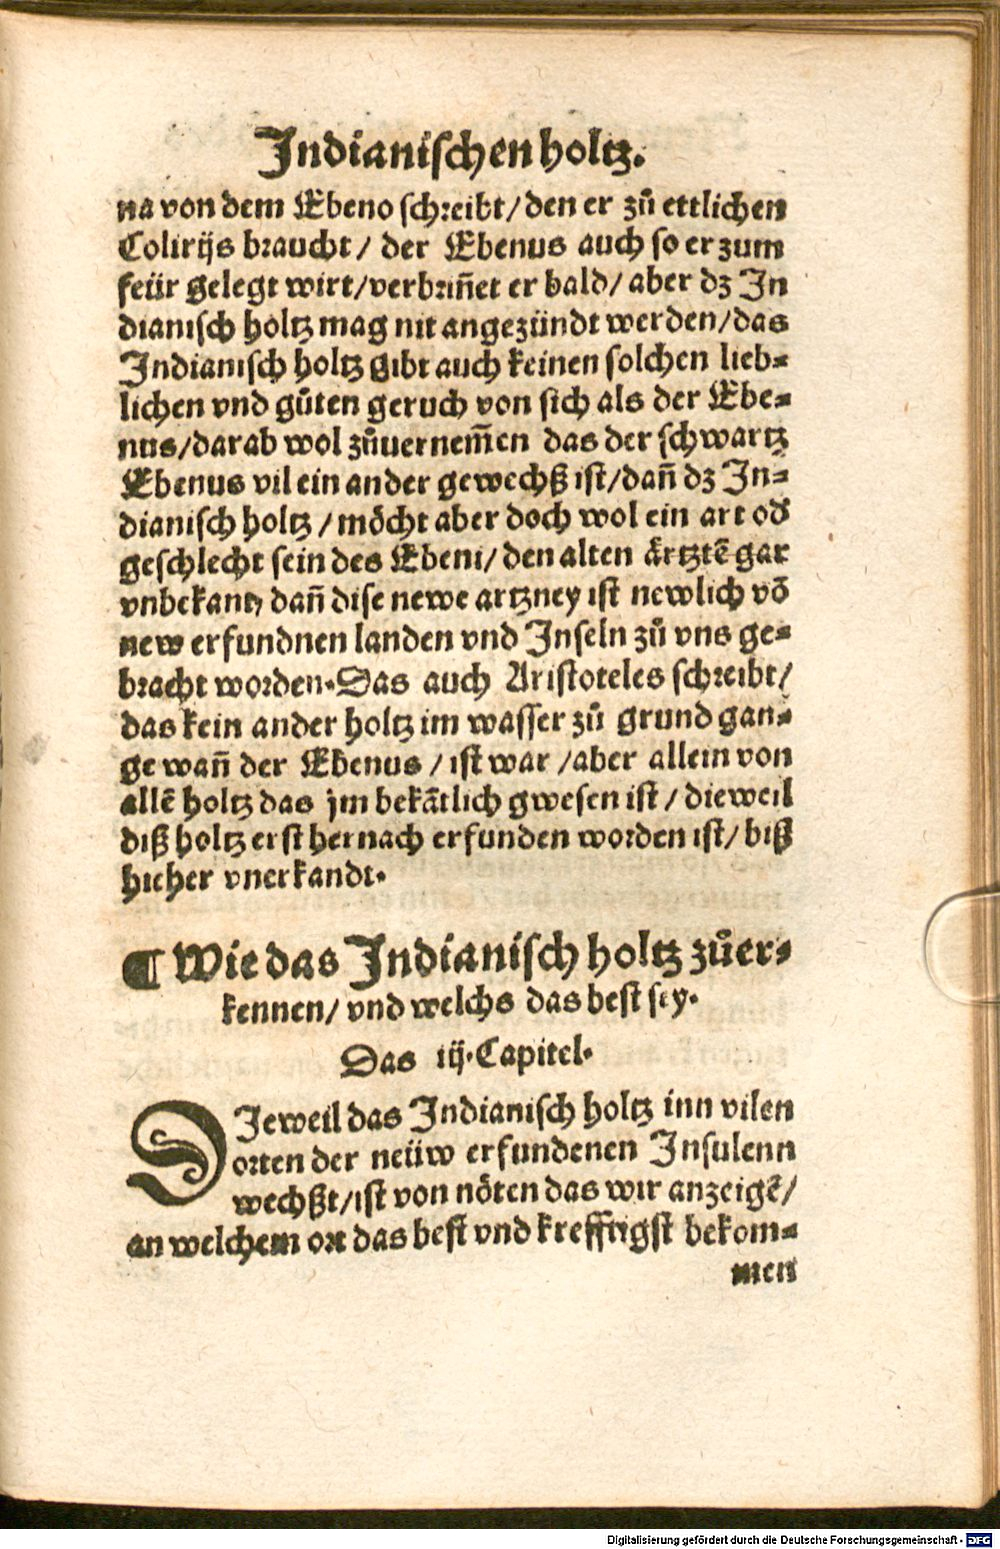 Indianischen holtz.
na von dem Ebeno schreibt/ den er zů ettlichen
Colirijs braucht/ der Ebenus auch so er zum
feür gelegt wirt/verbriñet er bald/ aber dz In
dianisch holtz mag nit angezündt werden/das
Indianisch holtz gibt auch keinen solchen lieb-
lichen vnd gůten geruch von sich als der Ebe-
nus/darab wol zůuernem̃en das der schwartz
Ebenus vil ein ander gewechß ist/dañ dz In-
dianisch holtz / möcht aber doch wol ein art od̕
geschlecht sein des Ebeni/ den alten ärtztẽ gar
vnbekant, dañ dise newe artzney ist newlich võ
new erfundnen landen vnd Inseln zů vns ge-
bracht worden. Das auch Aristoteles schreibt/
das kein ander holtz im wasser zů grund gan-
ge wañ der Ebenus / ist war /aber allein von
allẽ holtz das jm bekãtlich gwesen ist / dieweil
diß holtz erst hernach erfunden worden ist/ biß
hieher vnerkandt.
¶ Wie das Indianisch holtz zůer-
kennen/ vnd welchs das best sey.
Das iij. Capitel.
DIeweil das Indianisch holtz inn vilen
orten der neüw erfundenen Insulenn
wechßt/ist von nöten das wir anzeigẽ/
an welchem ort das best vnd krefftigst bekom-
men
Digitalisierung gefördert durch die Deutsche Forschungsgemeinschaft - DFG